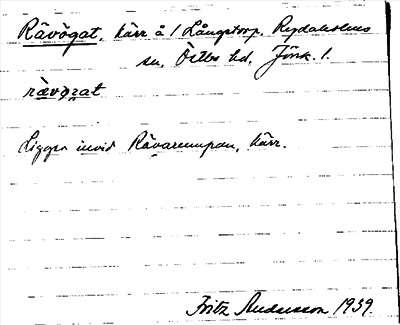 Rävögat, kärr å 1 Långstorp, Rydaholms
sn, Östbo hd, Jönk. l.
rävǫgat
Ligger invid Rävarumpan, kärr.
Fritz Andersson 1939.